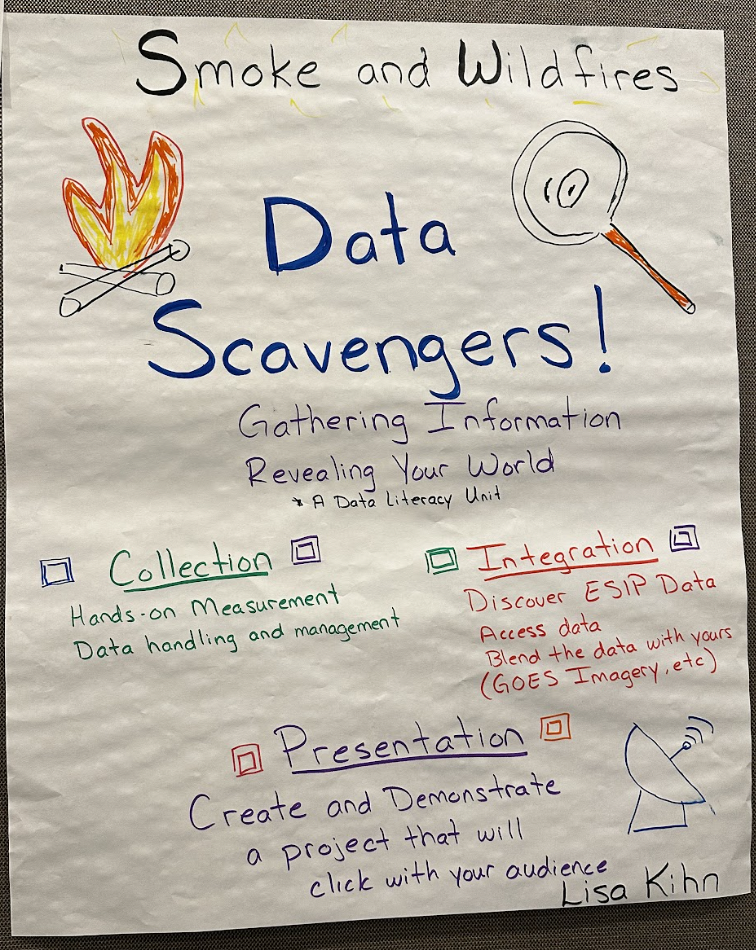 Smoke and Wildfires
Data
Scavengers!
Gathering Information
Revealing Your World
* A Data Literacy Unit
Collection
Hands-on Measurement
Data handling and management
Integration
Discover ESIP Data
Access data
Blend the data with yours
(GOES Imagery, etc)
Presentation
Create and Demonstrate
a project that will
click with your audience
Lisa Kihn